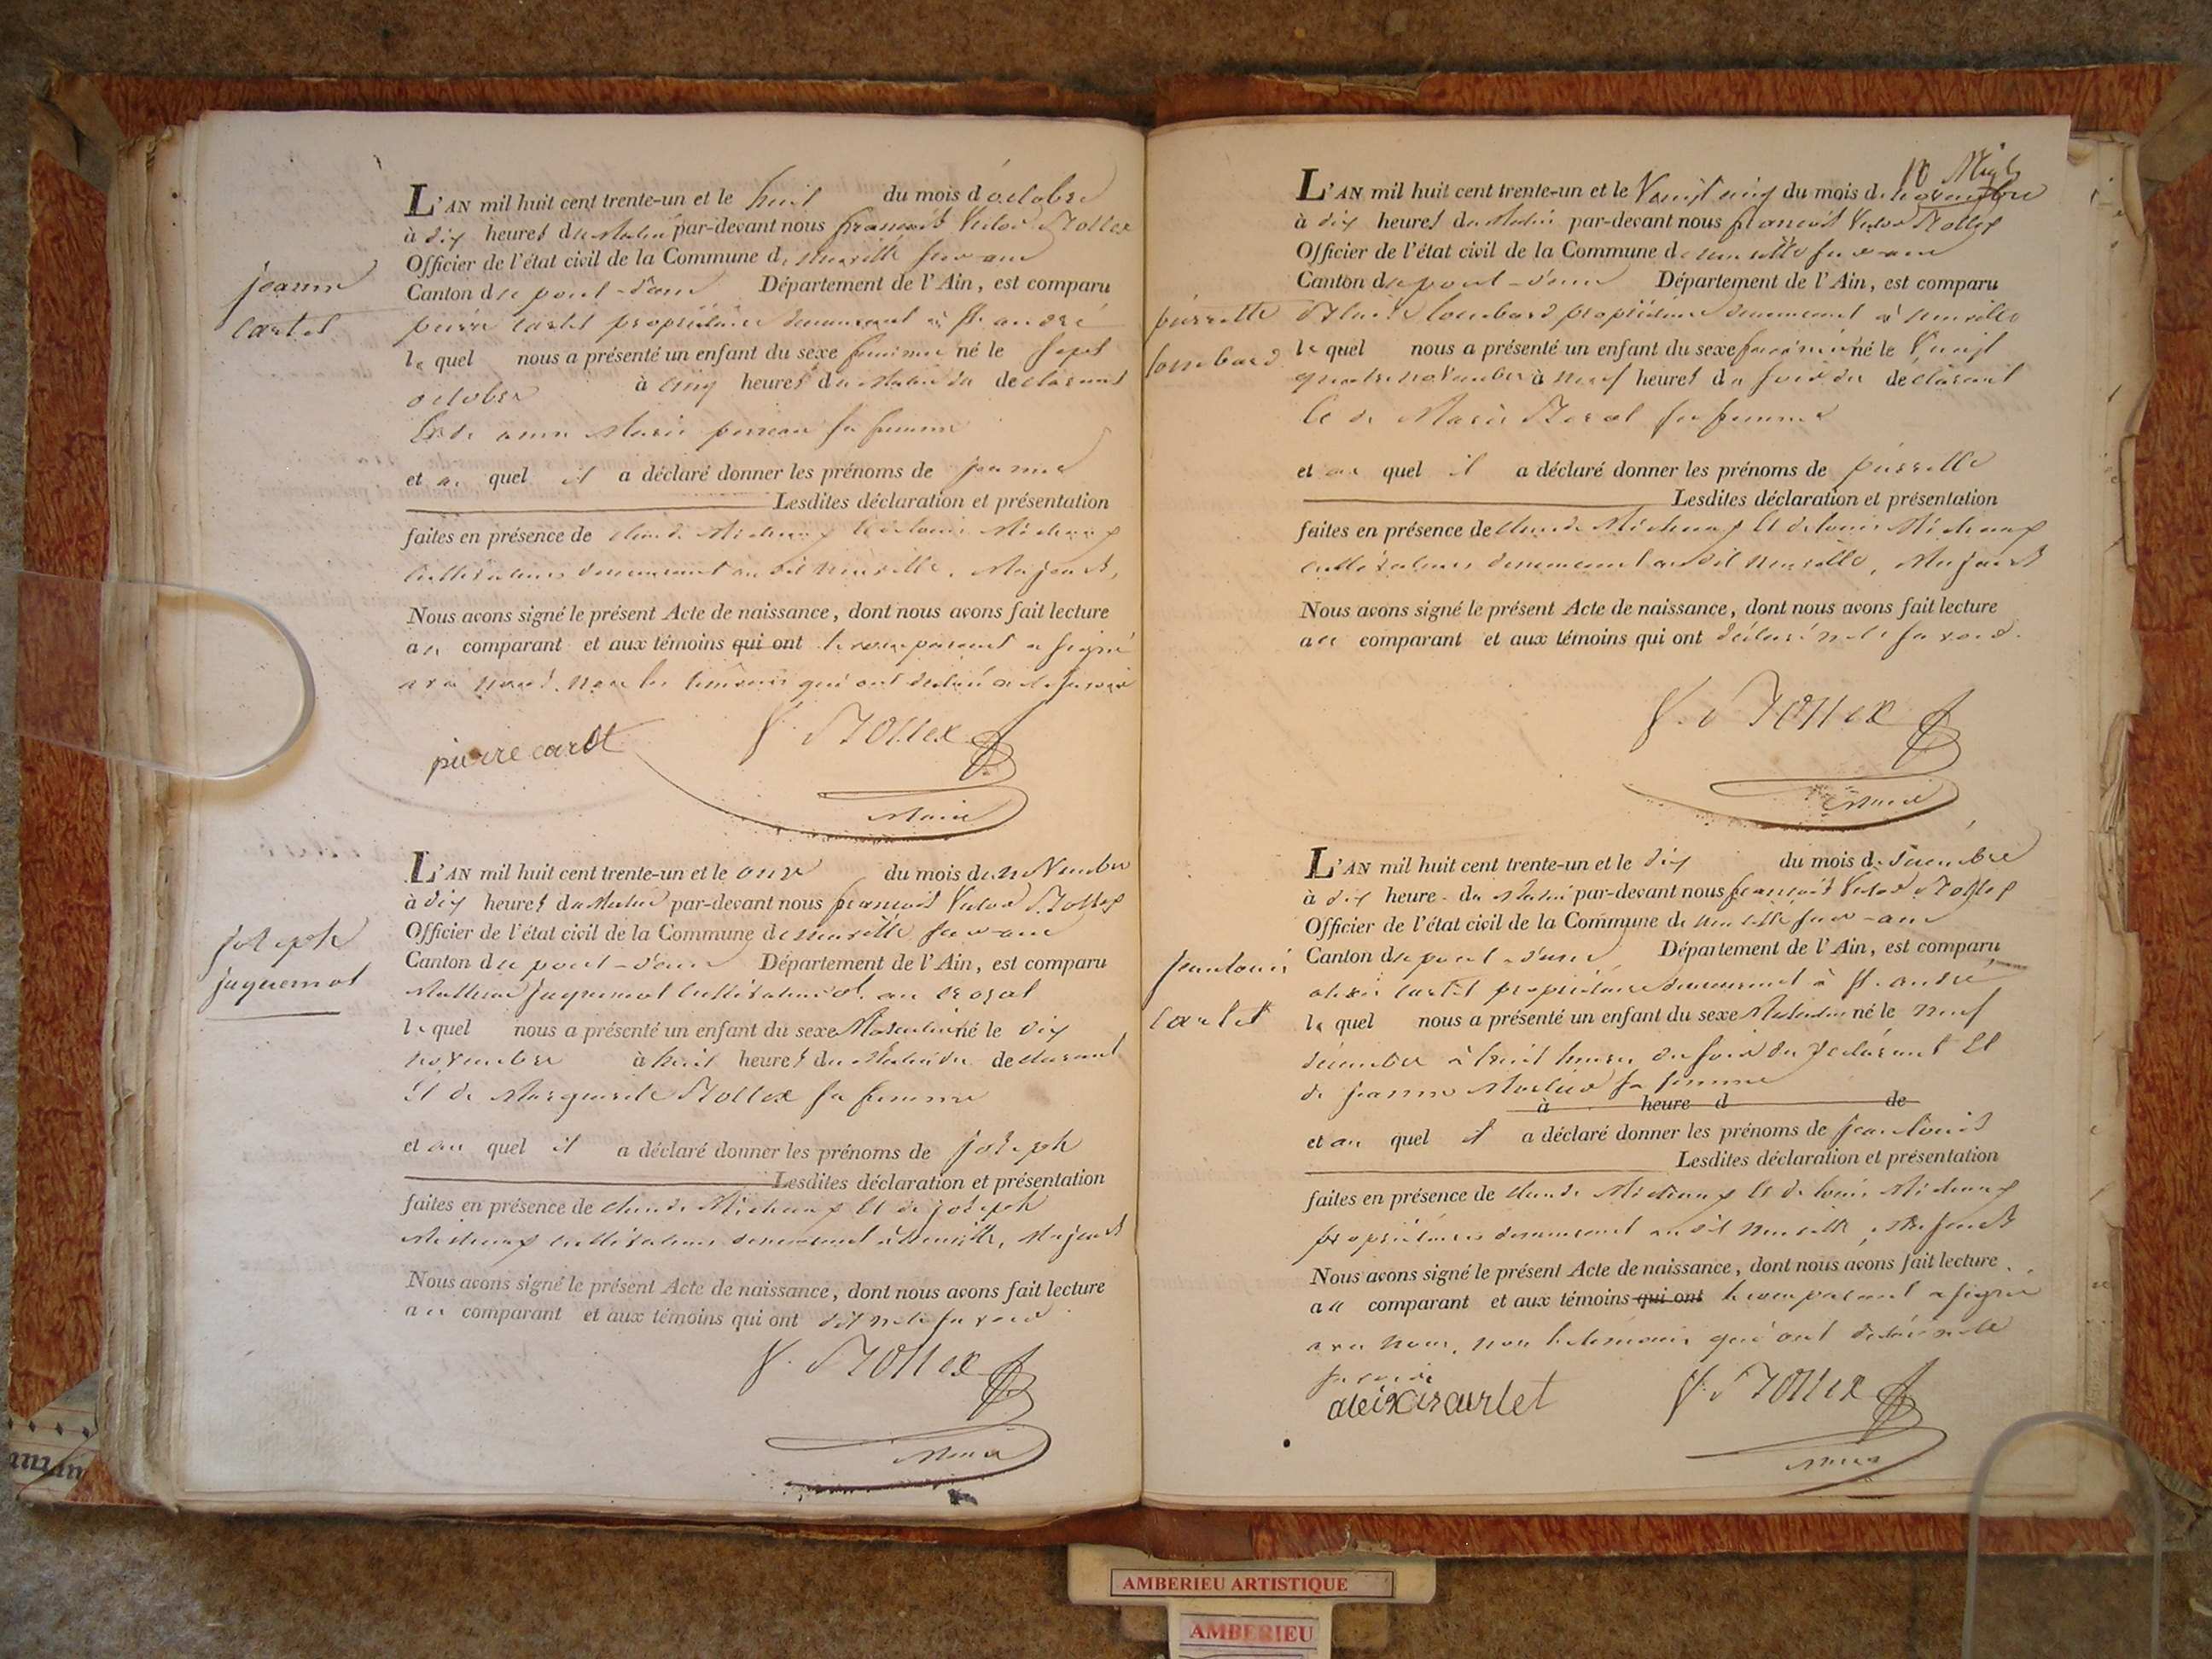 L'AN mil huit cent trente-un et le huit du mois d'octobre
à dix heures du Matin par-devant nous françois Victor Mollex
Officier de l'état civil de la Commune de neuville sur-ain
jeanne
Canton de pont-d'ain Département de l'Ain, est comparu
carlet
pierre carlet propriétaire demeurant à St. andré
le quel nous a présenté un enfant du sexe feminin né le sept
octobre à cinq heures du Matin du declarant
Et de anne Marie sa femme
et au quel il a déclaré donner les prénoms de jeanne
Lesdites déclaration et présentation
faites en présence de claude Michaux Et de louis Michaux
cultivateurs demeurant au dit neuville, Majeurs,
Nous avons signé le présent Acte de naissance, dont nous avons fait lecture
au comparant et aux témoins qui ont le comparant a signé
avec nous, non les témoins qui ont déclaré ne le savoir
pierre carlet
V. Mollex
Maire
L'AN mil huit cent trente-un et le onze du mois de novembre
à dix heures du Matin par-devant nous françois Victor Mollex
Officier de l'état civil de la Commune de neuville sur-ain
joseph
Canton de pont-d'ain Département de l'Ain, est comparu
juquemot
juquemot cultivateur d. au
le quel nous a présenté un enfant du sexe Masculin né le dix
novembre à huit heures du Matin du declarant
Et de Marguerite Mollex sa femme
et au quel il a déclaré donner les prénoms de joseph
Lesdites déclaration et présentation
faites en présence de claude Michaux Et de joseph
Michaux cultivateurs demeurant à neuville, Majeurs
Nous avons signé le présent Acte de naissance, dont nous avons fait lecture
au comparant et aux témoins qui ont dit ne le savoir
V. Mollex
Maire
10 Mile
L'AN mil huit cent trente-un et le Vingt cinq du mois de novembre
à dix heures du Matin par-devant nous françois Victor Mollex
Officier de l'état civil de la Commune de neuville sur-ain
Canton de pont-d'ain Département de l'Ain, est comparu
pierrette
lombard propriétaire demeurant à neuville
lombard
le quel nous a présenté un enfant du sexe feminin né le Vingt
quatre novembre à neuf heures du soir du declarant
Et de Marie sa femme
et au quel il a déclaré donner les prénoms de pierrette
Lesdites déclaration et présentation
faites en présence de claude Michaux Et de louis Michaux
cultivateurs demeurant au dit neuville, Majeurs
Nous avons signé le présent Acte de naissance, dont nous avons fait lecture
au comparant et aux témoins qui ont déclaré ne le savoir.
V. Mollex
Maire
L'AN mil huit cent trente-un et le dix du mois de décembre
à dix heure du Matin par-devant nous françois Victor Mollex
Officier de l'état civil de la Commune de neuville sur-ain
jean louis
Canton de pont-d'ain Département de l'Ain, est comparu
alexis carlet propriétaire demeurant à St. andré
carlet
le quel nous a présenté un enfant du sexe Masculin né le neuf
décembre à huit heures du soir du declarant Et
de jeanne sa femme
à heure d de
et au quel il a déclaré donner les prénoms de jean louis
Lesdites déclaration et présentation
faites en présence de claude Michaux Et de louis Michaux
propriétaires demeurant au dit neuville, Majeurs
Nous avons signé le présent Acte de naissance, dont nous avons fait lecture
au comparant et aux témoins qui ont le comparant a signé
avec nous, non les témoins qui ont déclaré ne le
savoir
aleixis carlet
V. Mollex
Maire
AMBERIEU ARTISTIQUE
AMBERIEU